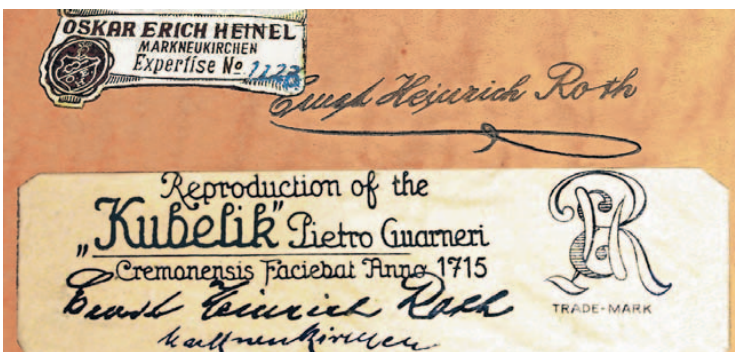 OSKAR ERICH HEINEL
MARKNEUKIRCHEN
Expertise № 1123
Ernst Heinrich Roth
Reproduction of the
„Kubelik" Pietro Guarneri
Cremonensis Faciebat Anno 1715
Ernst Heinrich Roth
Markneukirchen
TRADE-MARK